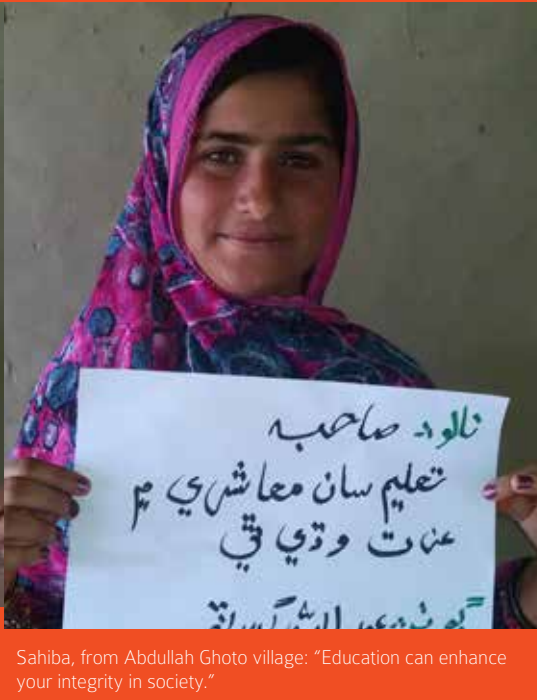 نالو: صاحبہ
تعليم سان معاشري ۾
عزت وڌي ٿي
ڳوٺ: عبدالله
Sahiba, from Abdullah Ghoto village: “Education can enhance
your integrity in society.”